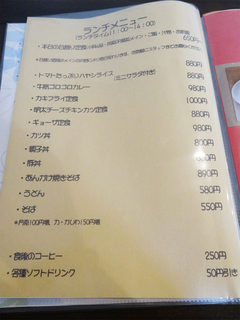 ランチメニュー
(ランチタイム11:00~14:00)
650円
・本日の日替り定食
880円
880円
・トマトたっぷりハヤシライス (ミニサラダ付き) 880円
・牛筋ゴロゴロカレー 980円
・カキフライ定食 1000円
・明太チーズチキンカツ定食 980円
・ギョーザ定食 880円
・カツ丼 880円
・親子丼 880円
・豚丼 880円
・あんかけ焼きそば 890円
・うどん 580円
・そば 550円
*丼類100円増、カツカレー150円増
・食後のコーヒー 250円
・各種ソフトドリンク 50円引き